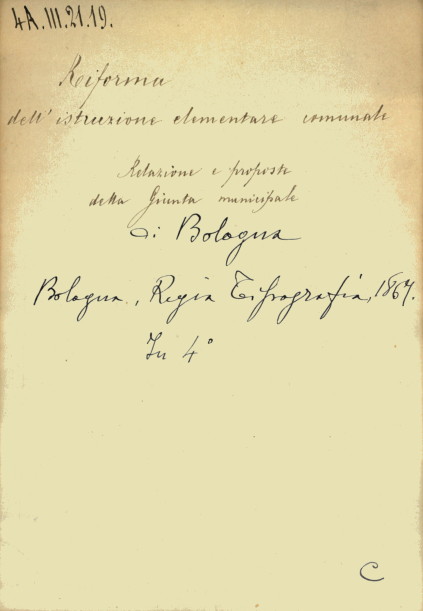 4A.III.21.19.
Riforma
dell' istruzione elementare comunale
Relazione e proposte
della Giunta municipale
di Bologna
Bologna, Regia Tipografia, 1867.
In 4°
C